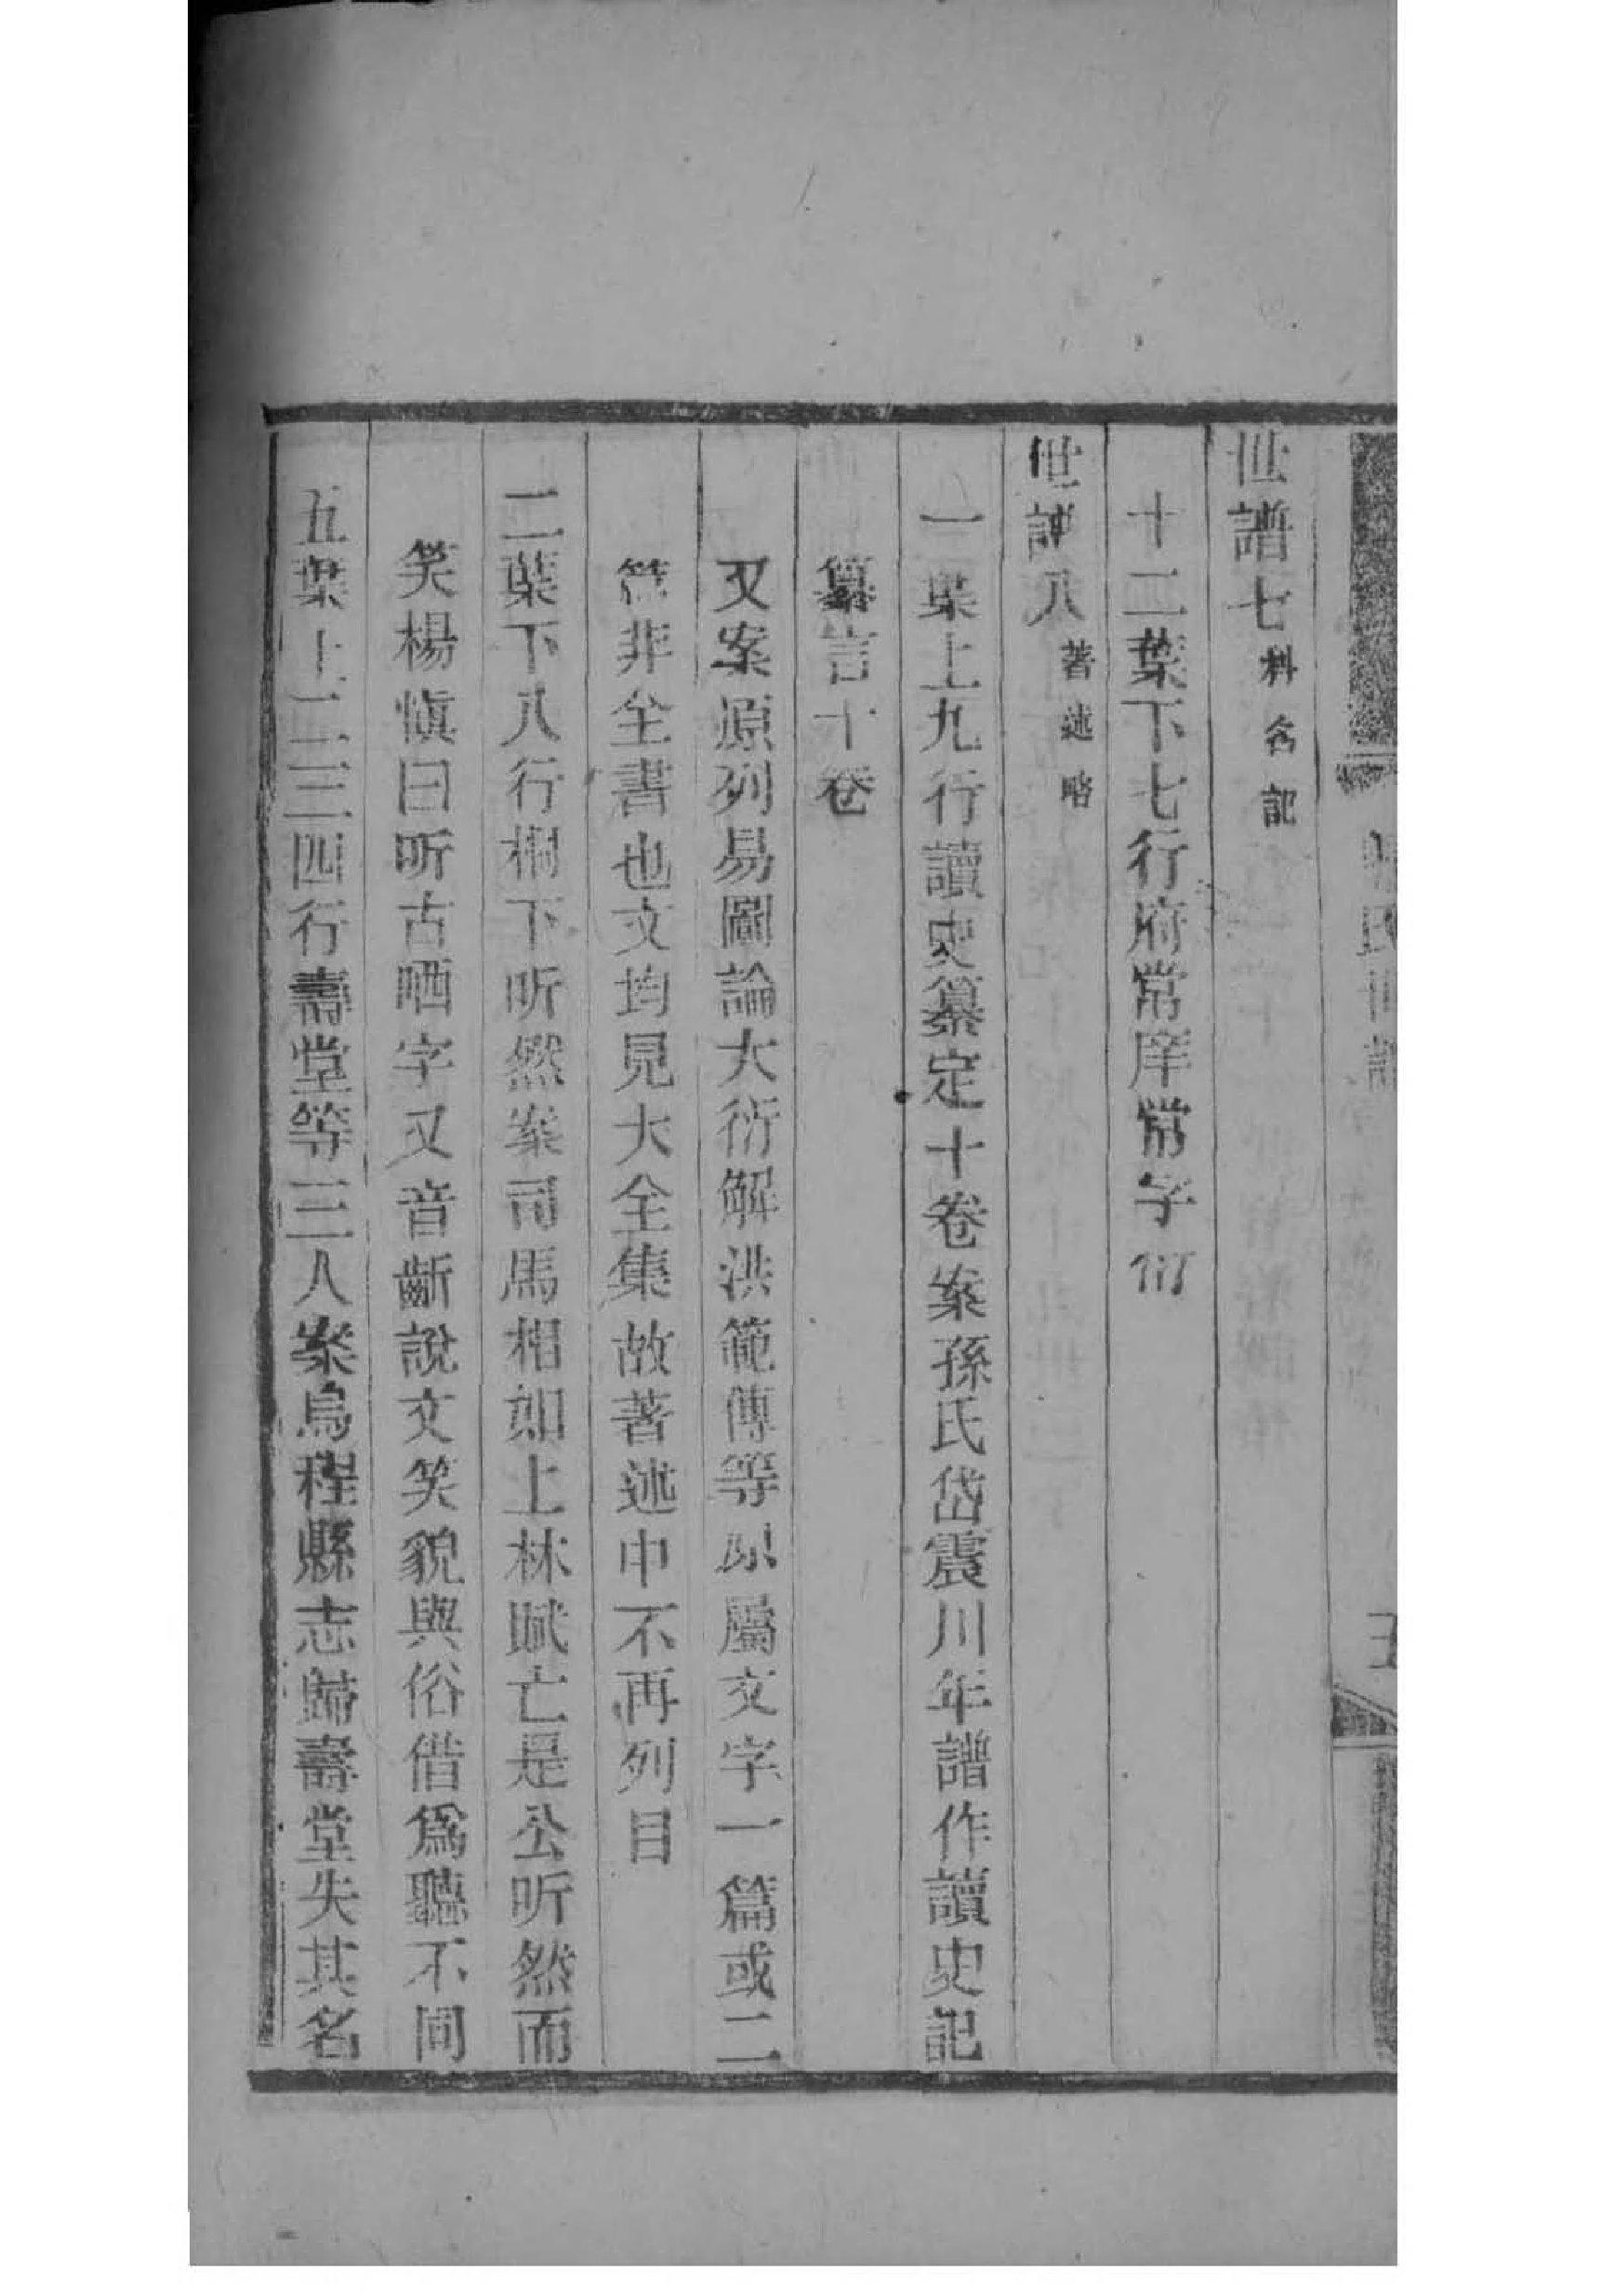 氏世譜
世譜七科名記
十二葉下七行府常庠常字衍
世譜八著述略
一葉上九行讀史纂定十卷案孫氏岱震川年譜作讀史記
纂言十卷
又案原列易圖論大衍解洪範傳等原屬文字一篇或二
篇非全書也文均見大全集故著述中不再列目
二葉下八行桐下听然案司馬相如上林賦亡是公听然而
笑楊慎曰听古哂字又音齗說文笑貌與俗借爲聽不同
五葉上二三四行壽堂等三人案烏程縣志歸壽堂失其名